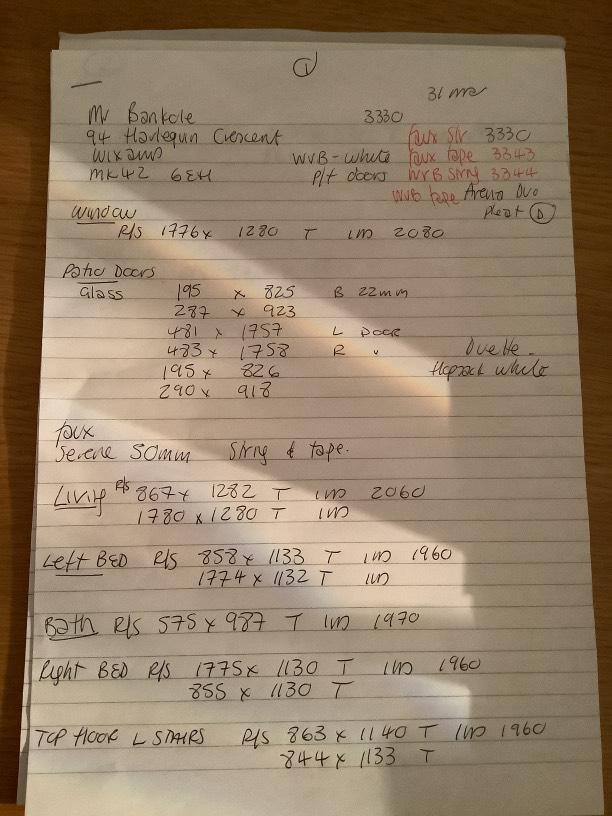 1
Mr Bankole 3330
94 Harlequin Crescent faux Str 3330
Wixams WVB - white faux tape 3343
MK42 6EH P/f doors WVB String 3344
WVB tape Arena Duo
pleat D
Window
R/S 1776 x 1280 T 1M 2080
Patio Doors
Glass 195 x 825 B 22mm
287 x 923
481 x 1757 L DOOR
483 x 1758 R "
195 x 826 Duette
290 x 918 white
faux
Serene 50mm String & tape.
Living R/S 867 x 1282 T 1M 2060
1780 x 1280 T 1M
Left BED R/S 858 x 1133 T 1M 1960
1774 x 1132 T 1M
Bath R/S 575 x 987 T 1M 1970
Right BED R/S 1775 x 1130 T 1M 1960
855 x 1130 T
TOP FLOOR L STAIRS R/S 863 x 1140 T 1M 1960
844 x 1133 T